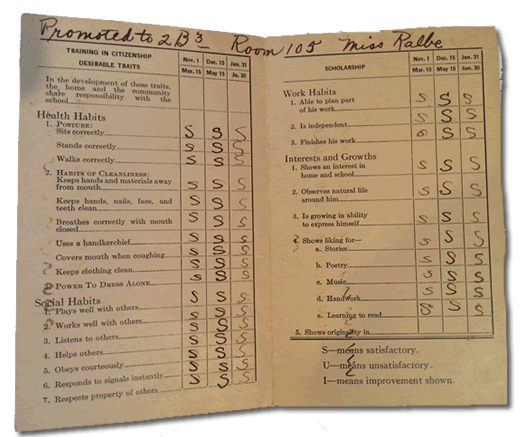 Promoted to 2B3 Room 105 Miss Ralbe
TRAINING IN CITIZENSHIP
DESIRABLE TRAITS
Nov. 1 Dec. 15 Jan. 31
Mar. 15 May 15 Ju. 30
In the development of these traits,
the home and the community
share responsibility with the
school
Health Habits
1. POSTURE:
Sits correctly S S S
Stands correctly S S S
Walks correctly S S S
2. HABITS OF CLEANLINESS:
Keeps hands and materials away
from mouth S S S
Keeps hands, nails, face, and
teeth clean S S S
Breathes correctly with mouth
closed S S S
Uses a handkerchief S S S
Covers mouth when coughing S S S
Keeps clothing clean S S S
3. POWER TO DRESS ALONE S S S
Social Habits
1. Plays well with others S S S
2. Works well with others S S S
3. Listens to others S S S
4. Helps others S S S
5. Obeys courteously S S S
6. Responds to signals instantly S S S
7. Respects property of others S S S
SCHOLARSHIP
Nov. 1 Dec. 15 Jan. 31
Mar. 15 May 15 Jun. 30
Work Habits
1. Able to plan part
of his work S S S
2. Is independent S S S
3. Finishes his work S S S
Interests and Growths
1. Shows an interest in
home and school S S S
2. Observes natural life
around him S S S
3. Is growing in ability
to express himself S S S
4. Shows liking for—
a. Stories S S S
b. Poetry S S S
c. Music S S S
d. Handwork S S S
e. Learning to read S S S
5. Shows originality in
S—means satisfactory.
U—means unsatisfactory.
I—means improvement shown.